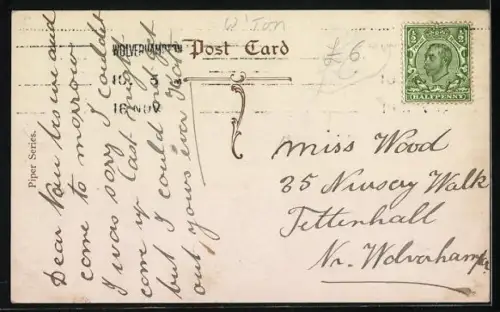 W'ton
£6
WOLVERHAMPTON
16 NOV
Post Card
HALFPENNY
Piper Series.
Dear Nan yes we and
come to morrow
I was sory I couldet
come up last night
but I could not get
out yours ever
Miss Wood
35 Nursery Walk
Tettenhall
Nr. Wolverhampton